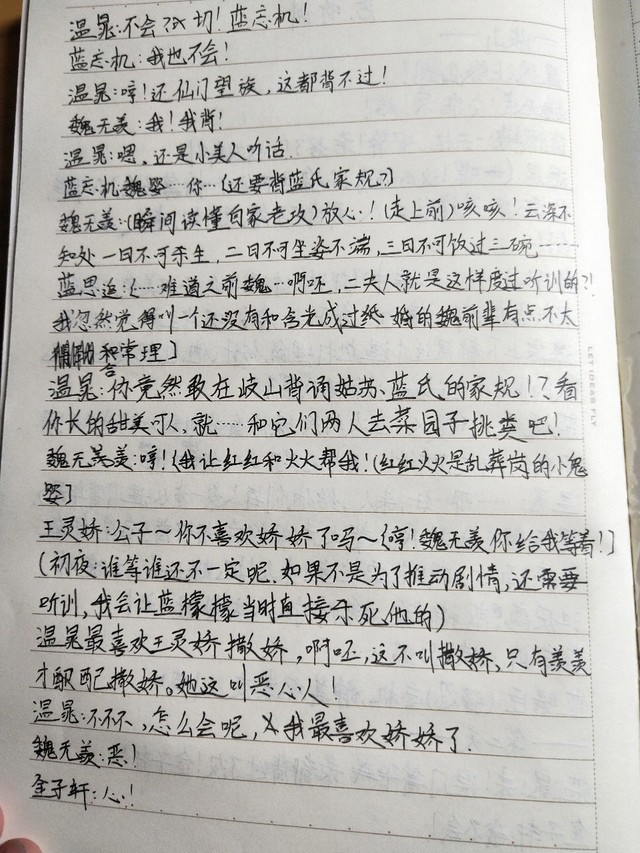 温晁:不会 切!蓝忘机!
蓝忘机:我也不会!
温晁:哼!还仙门望族,这都背不过!
魏无羡:我!我背!
温晁:嗯,还是小美人听话.
蓝忘机:魏婴…你…(还要背蓝氏家规?]
魏无羡:(瞬间读懂自家老攻)放心!(走上前)咳咳!云深不
知处 一曰不可杀生,二曰不可坐姿不端,三曰不可饭过三碗……
蓝思追:(…难道之前魏…啊呸,二夫人就是这样度过听训的?!
我忽然觉得叫一个还没有和含光成过纸 婚的魏前辈有点不太
合 常理]
温晁:你竟然敢在岐山背诵姑苏蓝氏的家规!?看
你长的甜美可人,就……和它们两人去菜园子挑粪吧!
魏无羡:哼!(我让红红和火火帮我!(红红火火是乱葬岗的小鬼
婴]
王灵娇:公子~你不喜欢娇娇了吗~(哼!魏无羡你给我等着!]
(初夜:谁等谁还不一定呢.如果不是为了推动剧情,还需要
听训,我会让蓝檬檬当时直接杀死他的)
温晁最喜欢王灵娇撒娇,啊呸,这不叫撒娇,只有羡羡
才配 撒娇。她这叫恶心人!
温晁:不不不,怎么会呢,我最喜欢娇娇了.
魏无羡:恶!
金子轩:心!
LET IDEAS FLY